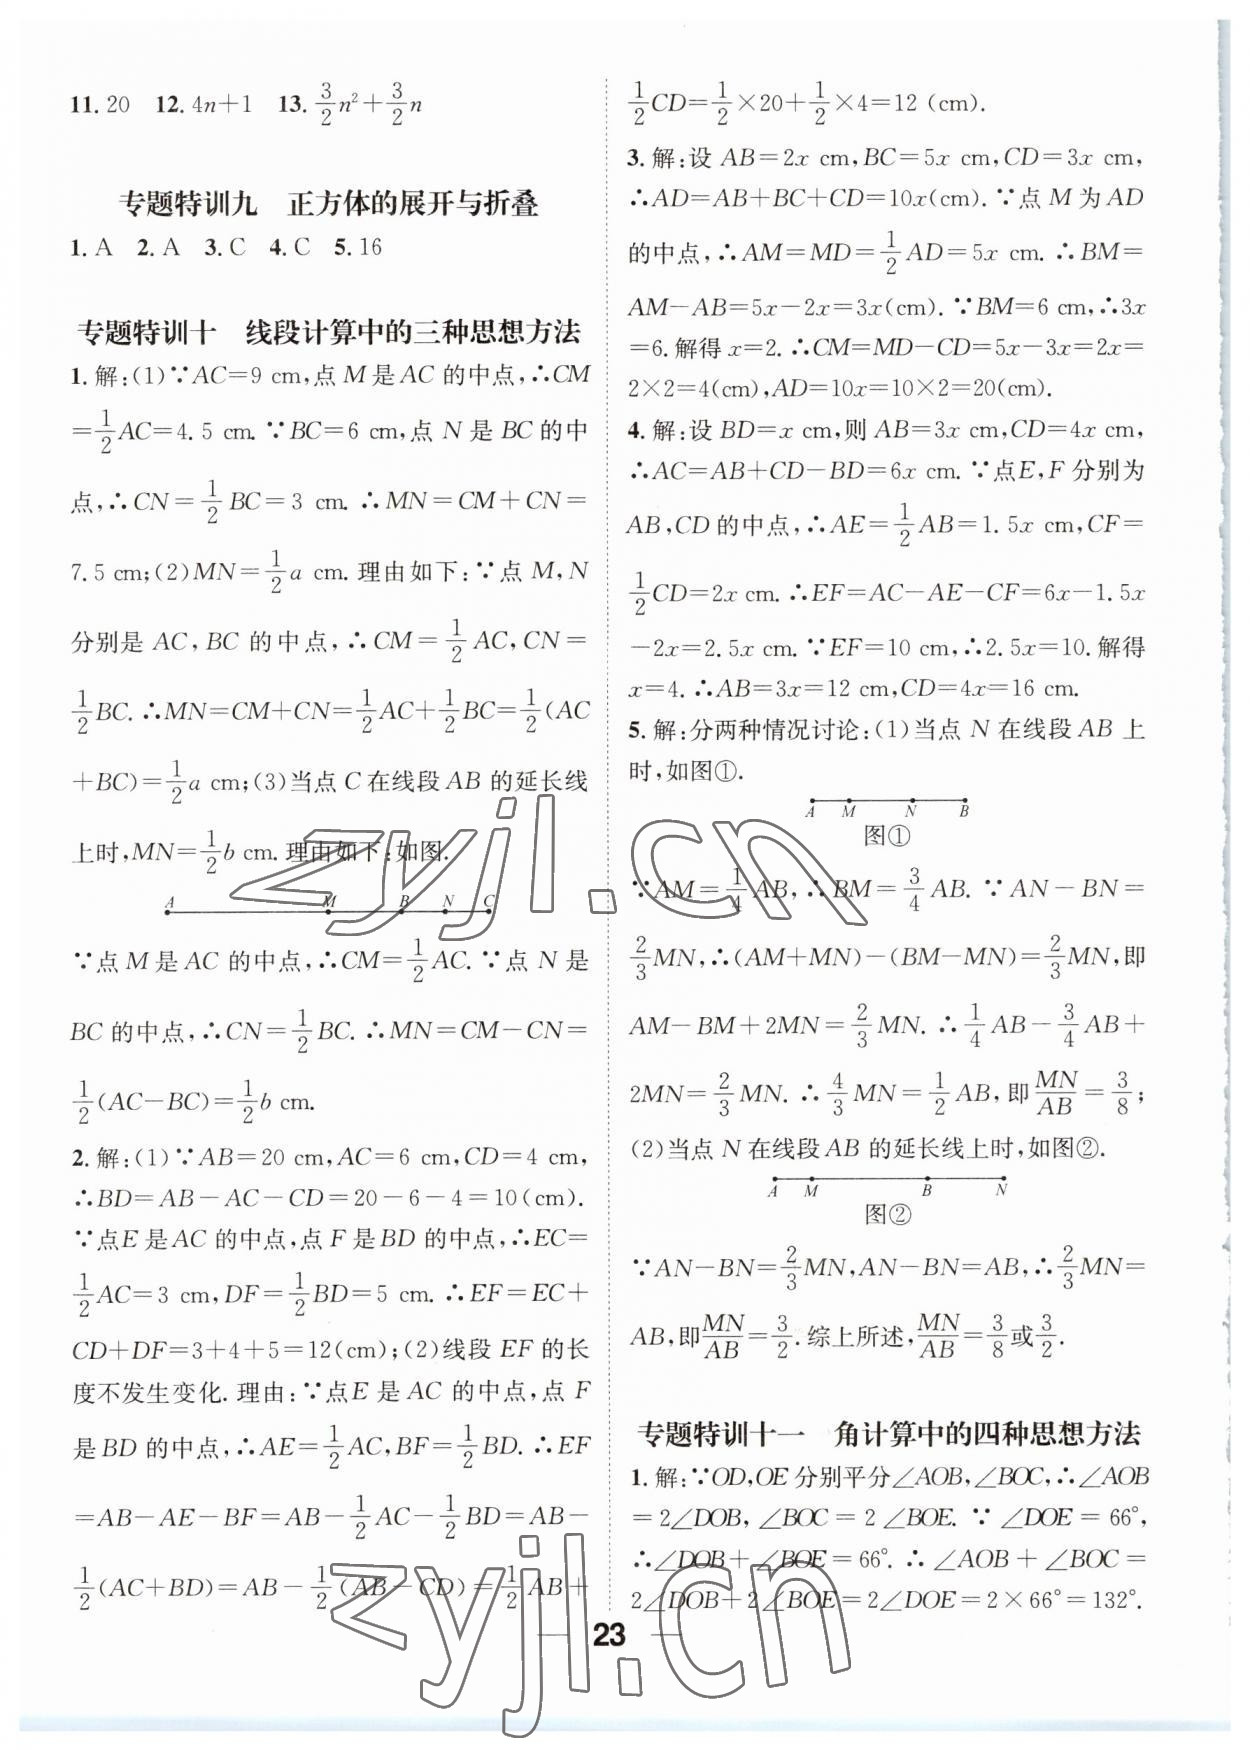 11. 20　12. 4n+1　13. 3/2 n²+3/2 n
专题特训九　正方体的展开与折叠
1. A　2. A　3. C　4. C　5. 16
专题特训十　线段计算中的三种思想方法
1. 解:(1)∵AC=9 cm,点 M 是 AC 的中点,∴CM
=1/2 AC=4.5 cm. ∵BC=6 cm,点 N 是 BC 的中
点,∴CN=1/2 BC=3 cm. ∴MN=CM+CN=
7.5 cm;(2)MN=1/2 a cm. 理由如下:∵点 M,N
分别是 AC,BC 的中点,∴CM=1/2 AC,CN=
1/2 BC. ∴MN=CM+CN=1/2 AC+1/2 BC=1/2(AC
+BC)=1/2 a cm;(3)当点 C 在线段 AB 的延长线
上时,MN=1/2 b cm. 理由如下:如图.
A M B N C
∵点 M 是 AC 的中点,∴CM=1/2 AC. ∵点 N 是
BC 的中点,∴CN=1/2 BC. ∴MN=CM-CN=
1/2(AC-BC)=1/2 b cm.
2. 解:(1)∵AB=20 cm,AC=6 cm,CD=4 cm,
∴BD=AB-AC-CD=20-6-4=10(cm).
∵点E 是 AC 的中点,点 F 是 BD 的中点,∴EC=
1/2 AC=3 cm,DF=1/2 BD=5 cm. ∴EF=EC+
CD+DF=3+4+5=12(cm);(2)线段 EF 的长
度不发生变化. 理由:∵点E 是 AC 的中点,点 F
是 BD 的中点,∴AE=1/2 AC,BF=1/2 BD. ∴EF
=AB-AE-BF=AB-1/2 AC-1/2 BD=AB-
1/2(AC+BD)=AB-1/2(AB-CD)=1/2 AB+
1/2 CD=1/2×20+1/2×4=12 (cm).
3. 解:设 AB=2x cm,BC=5x cm,CD=3x cm,
∴AD=AB+BC+CD=10x(cm). ∵点 M 为 AD
的中点,∴AM=MD=1/2 AD=5x cm. ∴BM=
AM-AB=5x-2x=3x(cm). ∵BM=6 cm,∴3x
=6. 解得 x=2. ∴CM=MD-CD=5x-3x=2x=
2×2=4(cm),AD=10x=10×2=20(cm).
4. 解:设 BD=x cm,则 AB=3x cm,CD=4x cm,
∴AC=AB+CD-BD=6x cm. ∵点E,F 分别为
AB,CD 的中点,∴AE=1/2 AB=1.5x cm,CF=
1/2 CD=2x cm. ∴EF=AC-AE-CF=6x-1.5x
-2x=2.5x cm. ∵EF=10 cm,∴2.5x=10. 解得
x=4. ∴AB=3x=12 cm,CD=4x=16 cm.
5. 解:分两种情况讨论:(1)当点 N 在线段 AB 上
时,如图①.
A M N B
图①
∵AM=1/4 AB,∴BM=3/4 AB. ∵AN-BN=
2/3 MN,∴(AM+MN)-(BM-MN)=2/3 MN,即
AM-BM+2MN=2/3 MN. ∴1/4 AB-3/4 AB+
2MN=2/3 MN. ∴4/3 MN=1/2 AB,即 MN/AB=3/8;
(2)当点 N 在线段 AB 的延长线上时,如图②.
A M B N
图②
∵AN-BN=2/3 MN,AN-BN=AB,∴2/3 MN=
AB,即 MN/AB=3/2. 综上所述,MN/AB=3/8 或 3/2.
专题特训十一　角计算中的四种思想方法
1. 解:∵OD,OE 分别平分∠AOB,∠BOC,∴∠AOB
=2∠DOB,∠BOC=2∠BOE. ∵∠DOE=66°,
∴∠DOB+∠BOE=66°. ∴∠AOB+∠BOC=
2∠DOB+2∠BOE=2∠DOE=2×66°=132°.
23
zyjl.cn
zyjl.cn